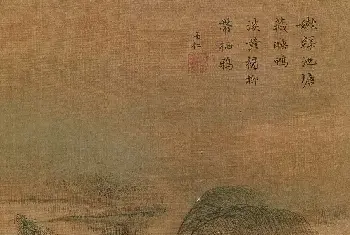 嫩綠池塘
藏睡鴨
淡黃楊柳
帶棲鴉